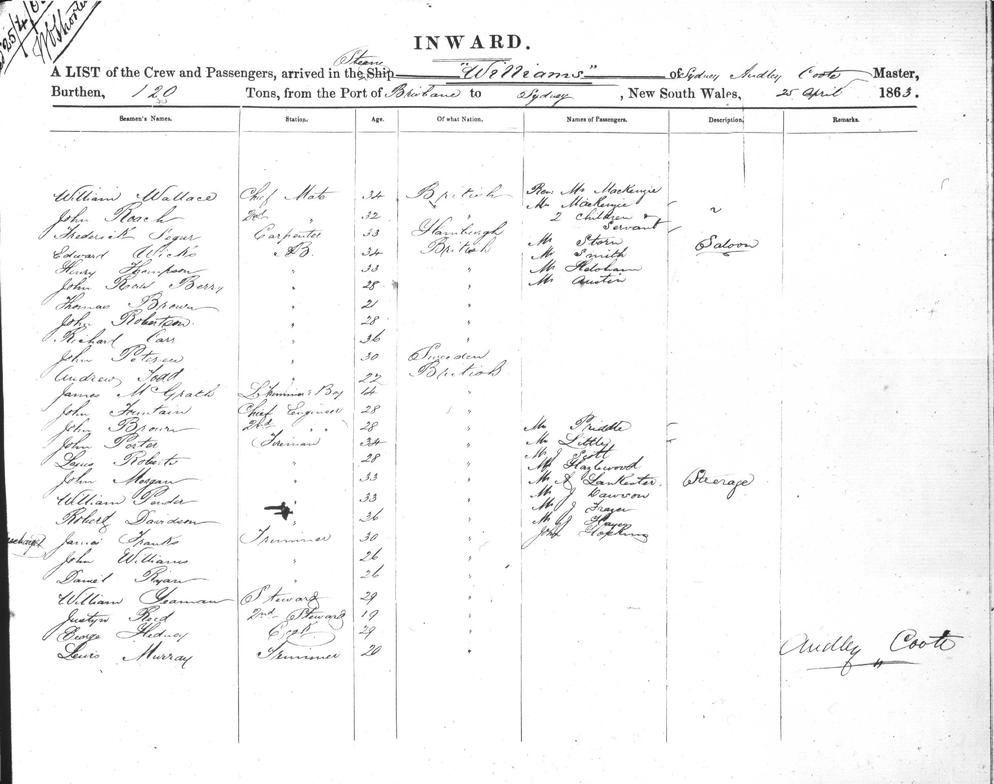 25/4/6
INWARD.
Steam
A LIST of the Crew and Passengers, arrived in the Ship "Williams" of Sydney Audley Coote Master,
Burthen, 120 Tons, from the Port of Brisbane to Sydney, New South Wales, 25 April 1863.
Seamen's Names. Station. Age. Of what Nation. Names of Passengers. Description. Remarks.
William Wallace Chief Mate 34 British Rev. Mr MacKenzie
John Roach 2nd " 32 " Mrs MacKenzie
2 Children &
Servant
Frederick Carpenter 33 Hamburgh Mr Storn Saloon
Edward Wicks AB. 34 British Mr Smith
Henry Thompson " 33 " Mr
John Ross Berry " 28 " Mr Austin
Thomas Brown " 21 "
John Robertson " 28 "
Richard Carr " 36 "
John Petersen " 30 Sweden
Andrew Todd " 22 British
James McGrath Boy 14 "
John Fountain Chief Engineer 28 "
John Brown 2nd " " 28 " Mr Priddle
John Porter Fireman 34 " Mr Little
Louis Roberts " 28 " Mr J Scott
Mr Hazlewood
John Morgan " 33 " Mr A Lankester Steerage
William Ponder " 33 " Mr J Dawson
Mr J Frazer
Robert Davidson " 36 " Mr J Hayes
James Franks Trimmer 30 " John Hopkins
John Williams " 26 "
Daniel Ryan " 26 "
William Yeaman Steward 29 "
Justyn Reed 2nd Steward 19 "
George Hedney Cook 29 "
Lewis Murray Trimmer 20 "
Audley Coote